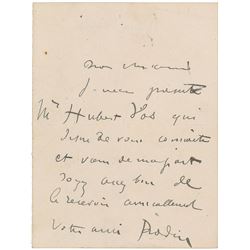 mon cher ami
Je vous présente
Mr Hubert Vos qui
désire de vous connaître
et vous de ma part
soyez assez bon de
le recevoir amicalement
votre ami Rodin